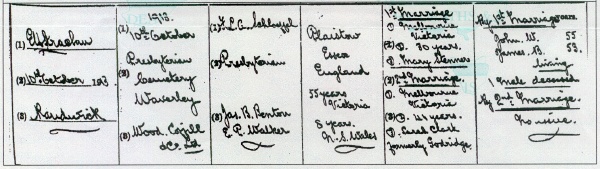 (1) E W Strachan
(2) 10th October 1913
(3) Randwick
1913.
(1) 10th October
(2) Presbyterian
Cemetery
Waverley
(3) Wood, Coffill
& Co. Ltd
(1)
(2) Presbyterian
(3) Jas. B. Renton
E. P. Walker
Plaistow
Essex
England
55 years
Victoria
8 years.
N. S. Wales
1st Marriage
(1) Melbourne
Victoria
(2) 30 years.
(3) Mary Menner
2nd Marriage.
(1) Melbourne
Victoria
(2) 44 years.
(3) Sarah Clark
formerly Godridge
By 1st Marriage years
John W. 55
James B. 53
living
1 male deceased
By 2nd Marriage.
No issue.